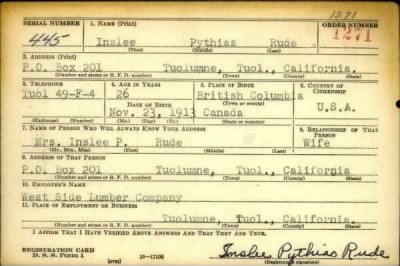 1271
SERIAL NUMBER 1. NAME (Print) ORDER NUMBER
445 Inslee Pythias Rude 1271
(First) (Middle) (Last)
2. ADDRESS (Print)
P.O. Box 201 Tuolumne, Tuol., California.
(Number and street or R. F. D. number) (Town) (County) (State)
3. TELEPHONE 4. AGE IN YEARS 5. PLACE OF BIRTH 6. COUNTRY OF CITIZENSHIP
Tuol 49-F-4 26 British Columbia
DATE OF BIRTH (Town or county)
Nov. 23, 1913 Canada U.S.A.
(Exchange) (Number) (Mo.) (Day) (Yr.) (State or country)
7. NAME OF PERSON WHO WILL ALWAYS KNOW YOUR ADDRESS 8. RELATIONSHIP OF THAT PERSON
Mrs. Inslee P. Rude Wife
(Mr., Mrs., Miss) (First) (Middle) (Last)
9. ADDRESS OF THAT PERSON
P.O. Box 201 Tuolumne, Tuol., California.
(Number and street or R. F. D. number) (Town) (County) (State)
10. EMPLOYER'S NAME
West Side Lumber Company
11. PLACE OF EMPLOYMENT OR BUSINESS
Tuolumne, Tuol., California.
(Number and street or R. F. D. number) (Town) (County) (State)
I AFFIRM THAT I HAVE VERIFIED ABOVE ANSWERS AND THAT THEY ARE TRUE.
REGISTRATION CARD
D. S. S. Form 1 (over) 16-17105 Inslee Pythias Rude
(Registrant's signature)